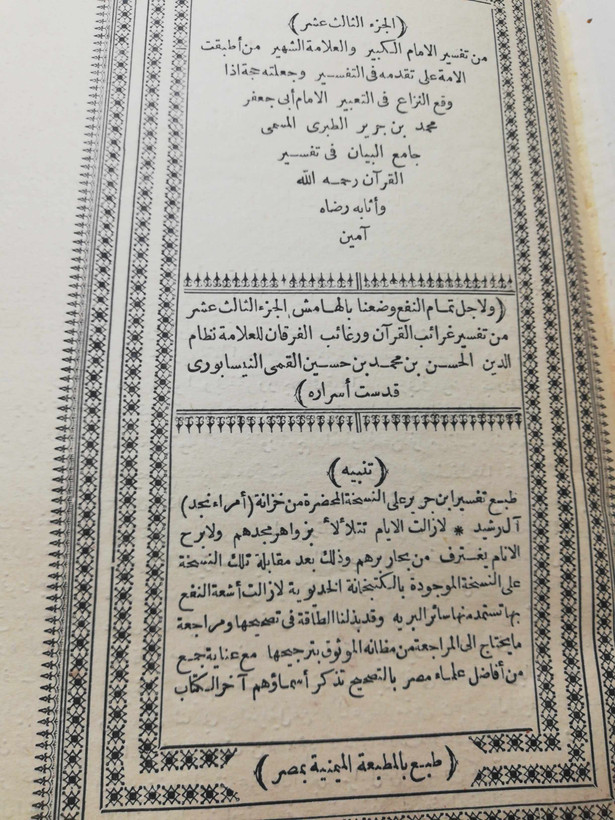 (الجزء الثالث عشر)
من تفسير الامام الكبير والعلامة الشهير من أطبقت
الامة على تقدمه فى التفسير وجعلته حجة اذا
وقع النزاع فى التعبير الامام أبى جعفر
محمد بن جرير الطبرى المسمى
جامع البيان فى تفسير
القرآن رحمه الله
وأثابه رضاه
آمين
(ولاجل تمام النفع وضعنا بالهامش الجزء الثالث عشر
من تفسير غرائب القرآن ورغائب الفرقان للعلامة نظام
الدين الحسن بن محمد بن حسين القمى النيسابورى
قدست أسراره)
(تنبيه)
طبع تفسير ابن جرير على النسخة المحضرة من خزانة (أمراء نجد)
آل رشيد * لازالت الايام تتلألأ بزواهر مجدهم ولابرح
الانام يغترف من بحار برهم وذلك بعد مقابلة تلك النسخة
على النسخة الموجودة بالكتبخانة الخديوية لازالت أشعة النفع
بها تستمد منها سائر البريه وقد بذلنا الطاقة فى تصحيحها ومراجعة
ما يحتاج الى المراجعة من مظانه الموثوق بترجيحها مع عناية جمع
من أفاضل علماء مصر بالتصحيح تذكر أسماؤهم آخر الكتاب
(طبع بالمطبعة الميمنية بمصر)